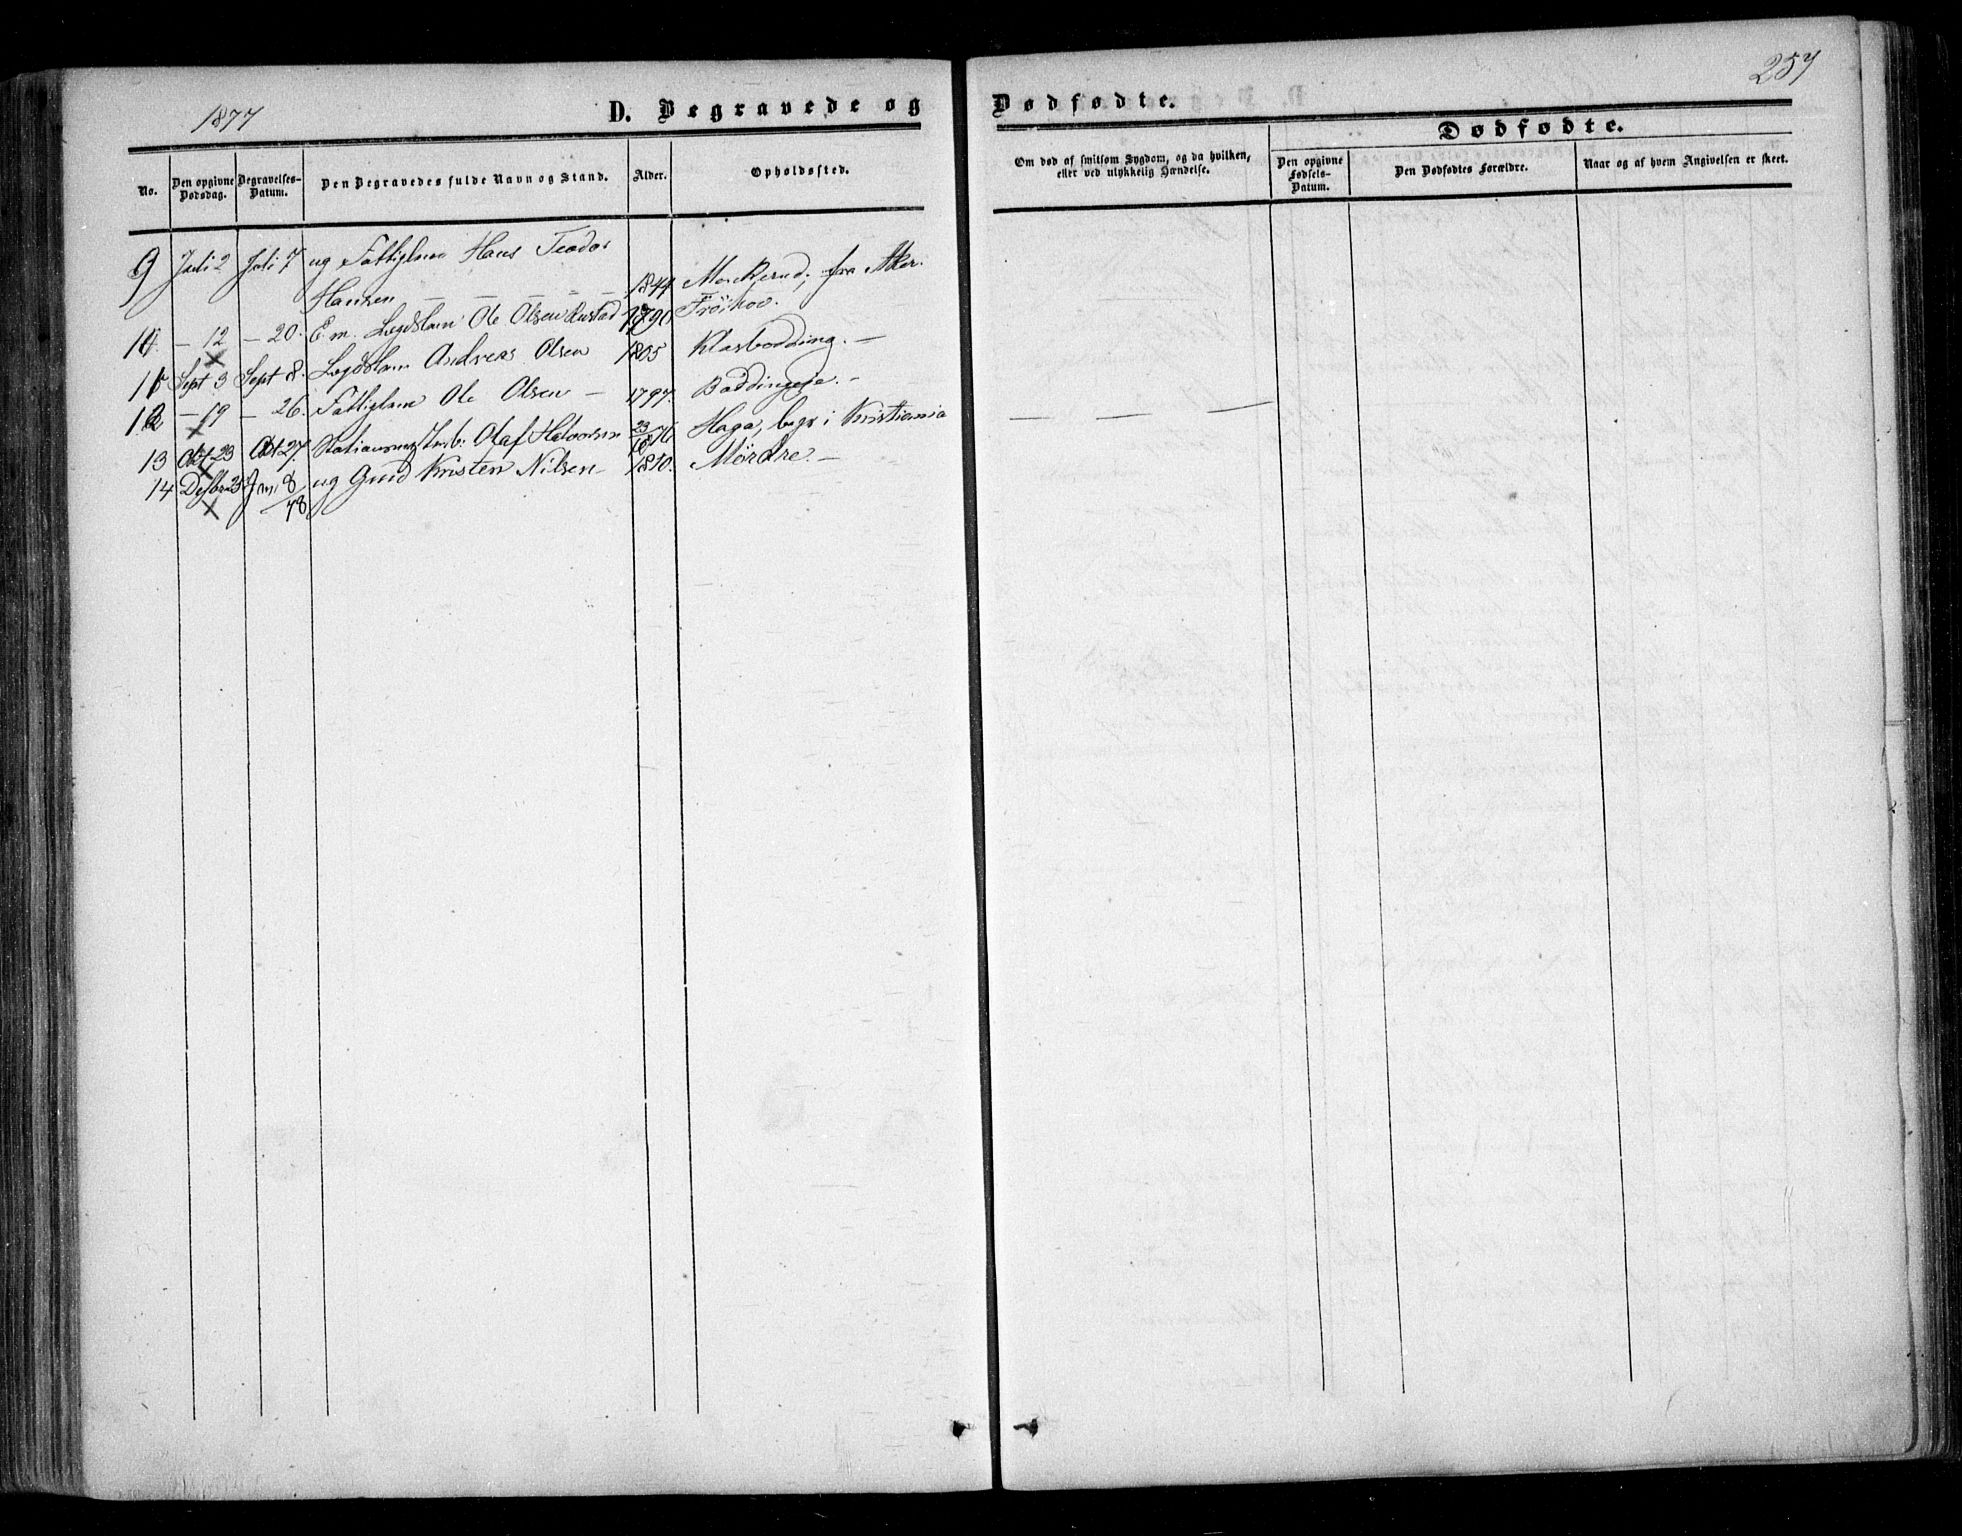 1877
257
D. Begravede og Dødfødte.
Dødfødte.
No.
Den opgivne Dødsdag.
Begravelses-Datum.
Den Begravedes fulde Navn og Stand.
Alder.
Opholdssted.
Om død af smitsom Sygdom, og da hvilken, eller ved ulykkelig Hændelse.
Den opgivne Fødsels-Datum.
Den Dødfødtes Forældre.
Naar og af hvem Angivelsen er skeet.
9 Juli 2 Juli 7 ug Fattiglem Hans Teodor
Hansen — — — — — 1844 fra Aker.
10 — 12 — 20. E. m. Legdslem Ole Olsen Rustad 1790 Frøihov.
11 Sept 3 Sept 8. Legdslem Andreas Olsen 1805 Klasbodding. —
12 — 19 — 26. Fattiglem Ole Olsen — 1797. Boddingeje. —
13 Okt 23 Okt 27. Olaf Halvorsen 23/10 1876 Haga, begr i Kristiania
14 Desbr 25 Jan. 8/78 ug Gmd Kristen Nilsen — 1810. Mørdre. —